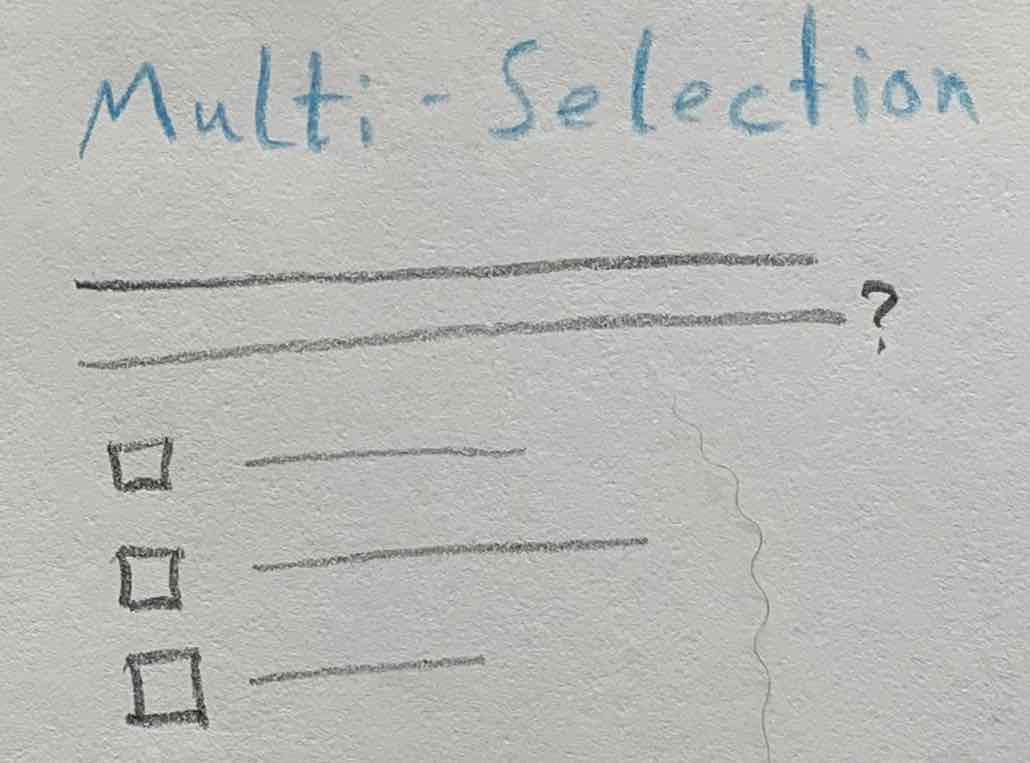 Multi-Selection
?